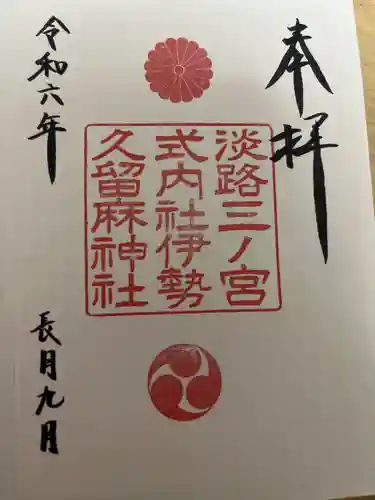 奉拝
淡路三ノ宮
式内社伊勢
久留麻神社
令和六年
長月九月